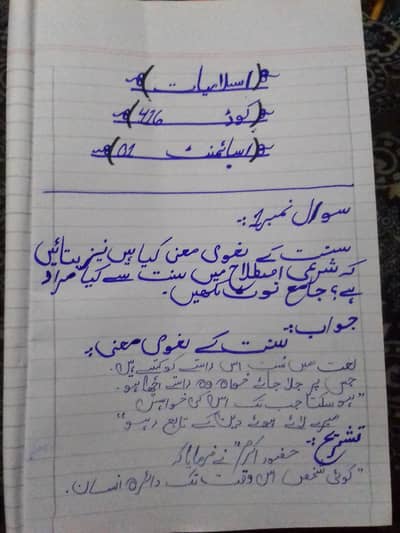 (اسلامیات)
(کوڈ 416)
(اسائمنٹ 01)
سوال نمبر 1:۔
سنت کے لغوی معنی کیا ہیں نیز بتائیں
کہ شرعی اصطلاح میں سنت سے کیا مراد
ہے؟ جامع نوٹ لکھیں۔
جواب:۔
سنت کے لغوی معنی:۔
لغت میں سنت اس راستے کو کہتے ہیں۔
جس پر چلا جائے خواہ وہ راستہ اچھا ہو۔
"ہو سکتا جب تک اس کی خواہش
میرے لائے ہوئے کے تابع نہ ہو"
تشریح:۔
حضور اکرمؐ نے فرمایا کہ
"کوئی شخص اس وقت تک دائرہ انسان۔